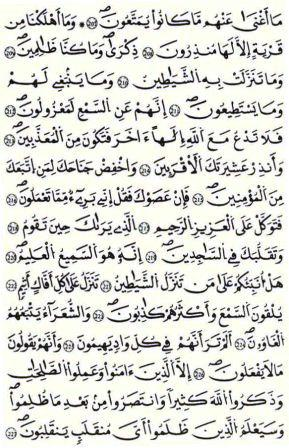 مَا أَغْنَىٰ عَنْهُم مَّا كَانُوا۟ يُمَتَّعُونَ ۝٢٠٧ وَمَا أَهْلَكْنَا مِن
قَرْيَةٍ إِلَّا لَهَا مُنذِرُونَ ۝٢٠٨ ذِكْرَىٰ وَمَا كُنَّا ظَٰلِمِينَ ۝٢٠٩
وَمَا تَنَزَّلَتْ بِهِ الشَّيَٰطِينُ ۝٢١٠ وَمَا يَنۢبَغِي لَهُمْ
وَمَا يَسْتَطِيعُونَ ۝٢١١ إِنَّهُمْ عَنِ السَّمْعِ لَمَعْزُولُونَ ۝٢١٢
فَلَا تَدْعُ مَعَ اللَّهِ إِلَٰهًا ءَاخَرَ فَتَكُونَ مِنَ الْمُعَذَّبِينَ ۝٢١٣
وَأَنذِرْ عَشِيرَتَكَ الْأَقْرَبِينَ ۝٢١٤ وَاخْفِضْ جَنَاحَكَ لِمَنِ اتَّبَعَكَ
مِنَ الْمُؤْمِنِينَ ۝٢١٥ فَإِنْ عَصَوْكَ فَقُلْ إِنِّي بَرِيءٌ مِّمَّا تَعْمَلُونَ ۝٢١٦
وَتَوَكَّلْ عَلَى الْعَزِيزِ الرَّحِيمِ ۝٢١٧ الَّذِي يَرَىٰكَ حِينَ تَقُومُ ۝٢١٨
وَتَقَلُّبَكَ فِي السَّٰجِدِينَ ۝٢١٩ إِنَّهُ هُوَ السَّمِيعُ الْعَلِيمُ ۝٢٢٠
هَلْ أُنَبِّئُكُمْ عَلَىٰ مَن تَنَزَّلُ الشَّيَٰطِينُ ۝٢٢١ تَنَزَّلُ عَلَىٰ كُلِّ أَفَّاكٍ أَثِيمٍ ۝٢٢٢
يُلْقُونَ السَّمْعَ وَأَكْثَرُهُمْ كَٰذِبُونَ ۝٢٢٣ وَالشُّعَرَاءُ يَتَّبِعُهُمُ
الْغَاوُۥنَ ۝٢٢٤ أَلَمْ تَرَ أَنَّهُمْ فِي كُلِّ وَادٍ يَهِيمُونَ ۝٢٢٥ وَأَنَّهُمْ يَقُولُونَ
مَا لَا يَفْعَلُونَ ۝٢٢٦ إِلَّا الَّذِينَ ءَامَنُوا۟ وَعَمِلُوا۟ الصَّٰلِحَٰتِ
وَذَكَرُوا۟ اللَّهَ كَثِيرًا وَانتَصَرُوا۟ مِنۢ بَعْدِ مَا ظُلِمُوا۟
وَسَيَعْلَمُ الَّذِينَ ظَلَمُوا۟ أَيَّ مُنقَلَبٍ يَنقَلِبُونَ ۝٢٢٧